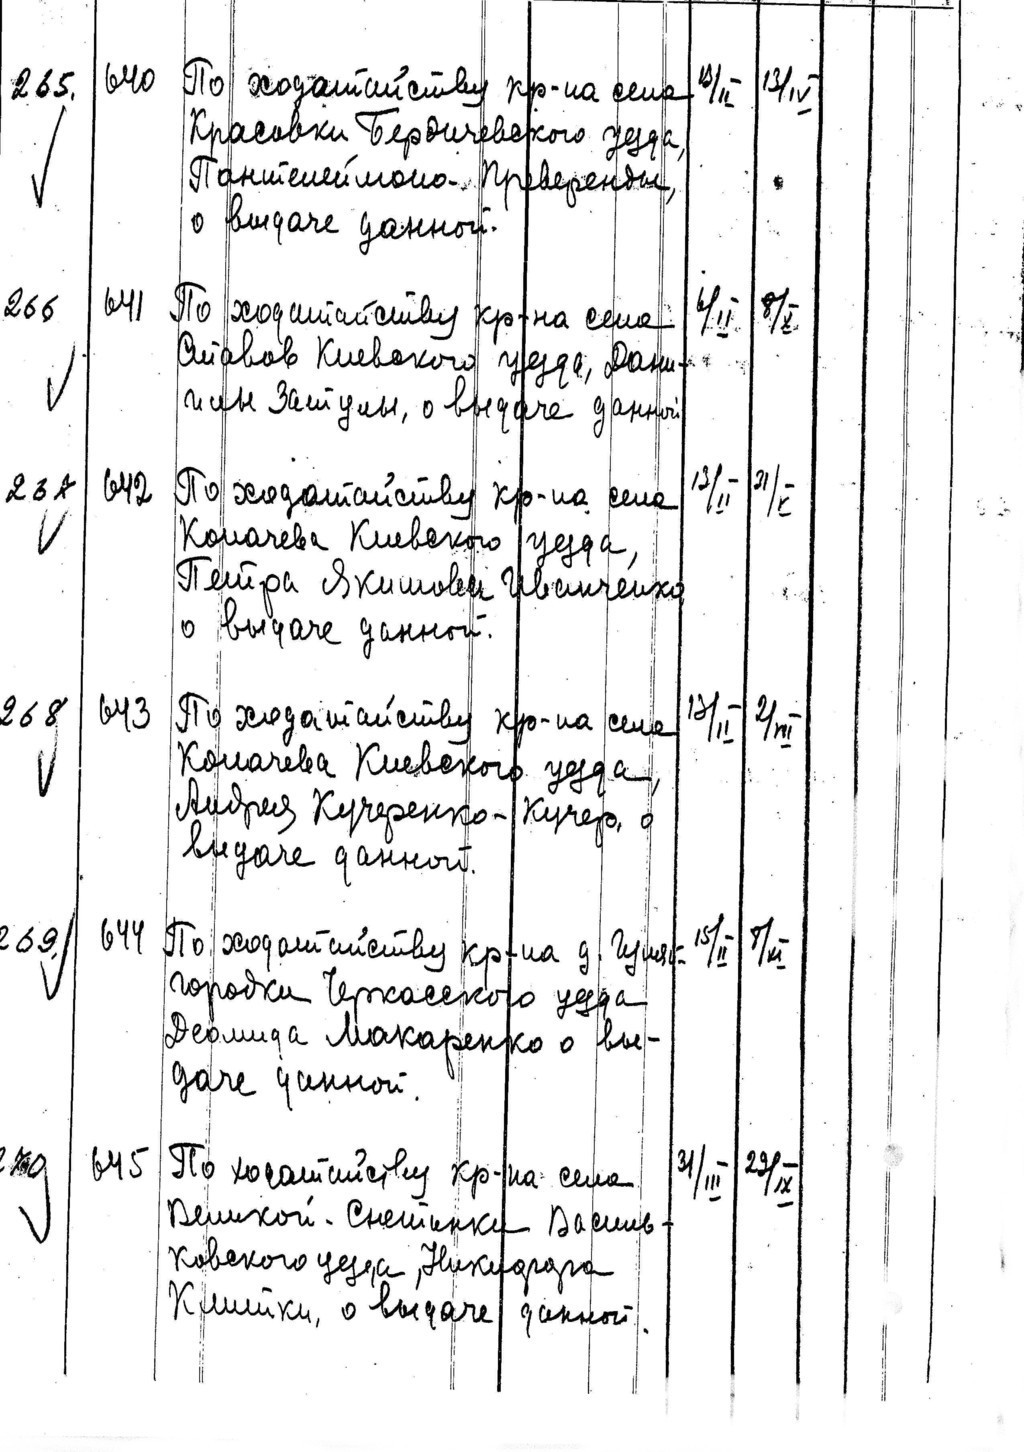 265. 640 По ходатайству кр-на села 13/II 13/IV
Красовки Бердичевского уезда,
Пантелеймона Преверенды,
о выдаче данной.
266 641 По ходатайству кр-на села 6/II 8/X
Ставов Киевского уезда, Дани-
илы Затулы, о выдаче данной
267 642 По ходатайству кр-на села 13/II 31/X
Копачева Киевского уезда,
Петра Якимова Иванченко
о выдаче данной.
268 643 По ходатайству кр-на села 13/II 2/VII
Копачева Киевского уезда,
Андрея Кучеренко-Кучер, о
выдаче данной.
269. 644 По ходатайству кр-на д. Гуляй- 15/II 8/XI
городки Черкасского уезда
Деомида Макаренко о вы-
даче данной.
270 645 По ходатайству кр-на села 31/III 29/IX
Великой-Снетинки Василь-
ковского уезда, Никифора
Клитки, о выдаче данной.